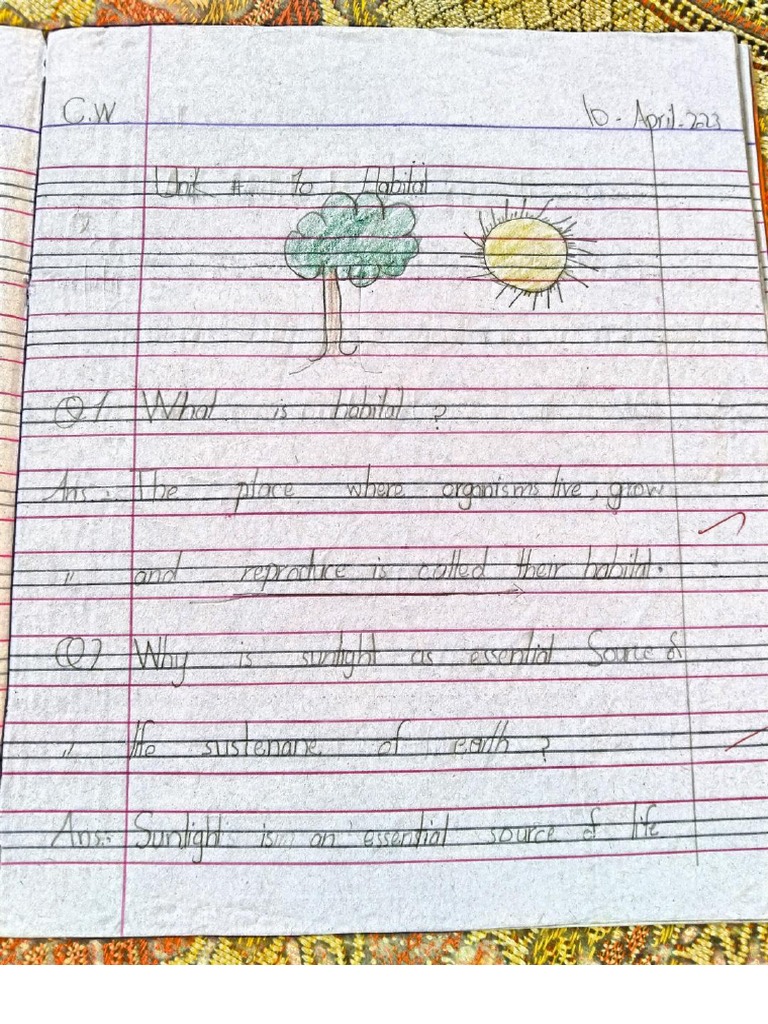 C.W
10 - April - 2023
Unit #. 10 Habitat
Q1 What is habitat ?
Ans:- The place where organisms live, grow
" and reproduce is called their habitat.
Q2 Why is sunlight as essential Source of
" life sustenane of earth ?
Ans:- Sunlight is an essential source of life